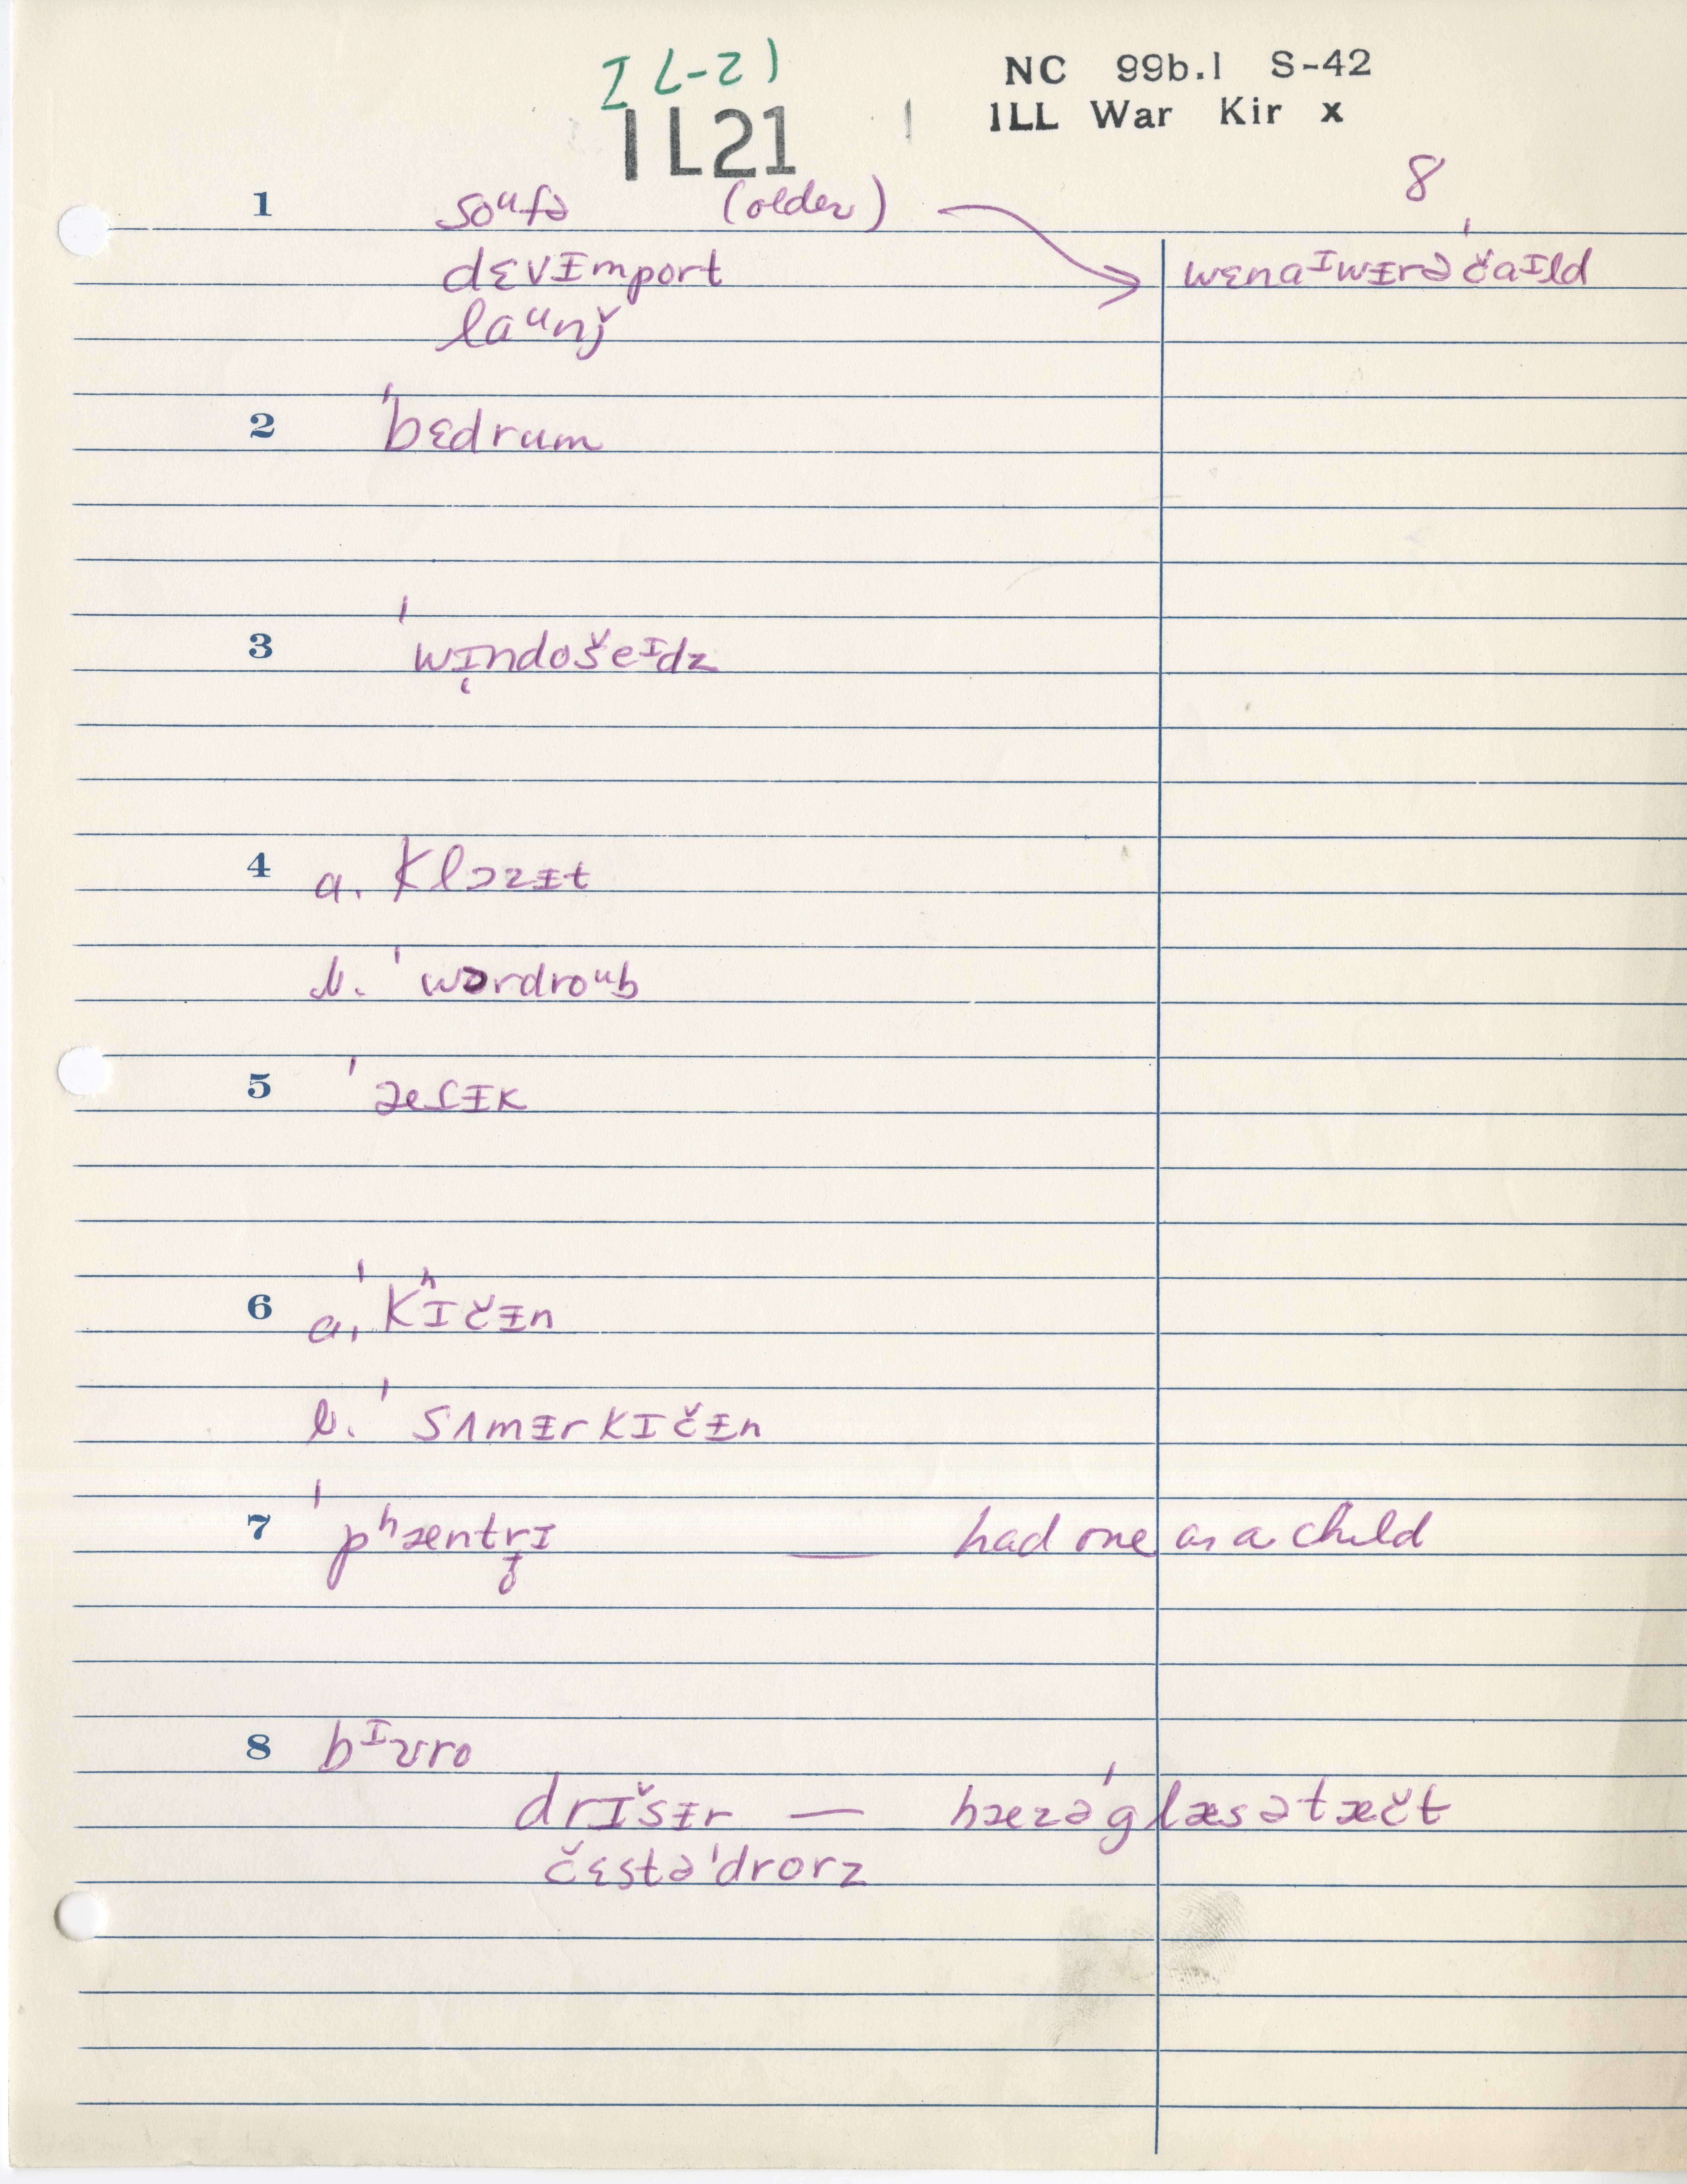 I L-21
1L21
NC 99b.1 S-42
1LL War Kir x
8
1 soᵘfə (older) → wɛnaᴵwɪrəˈčaᴵld
dɛvᵻmport
laᵘnǰ
2 ˈbɛdrum
3 ˈwɪndošeᴵdz
4 a. klɔzᵻt
b. ˈwɔrdroᵘb
5 ˈætᵻk
6 a. ˈkʰɪčᵻn
b. ˈsʌmᵻrkɪčᵻn
7 ˈpʰæntrɪ — had one as a child
8 bᴵʊro
drɪšᵻr — hæzəˈglæsətæčt
čɛstəˈdrorz